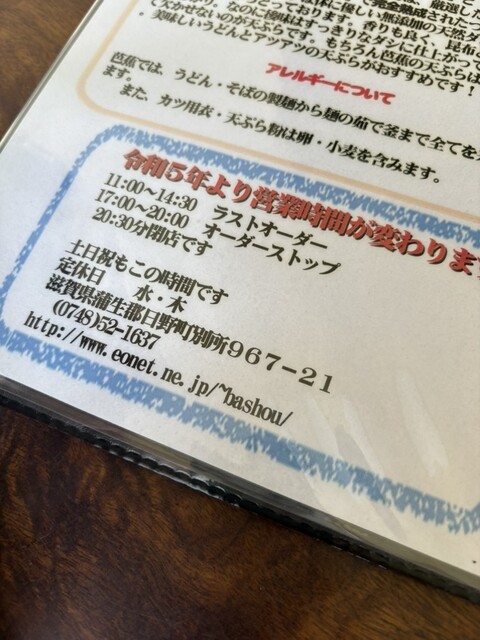 厳選し
完全熟成された
体に優しい無添加の天然ダ
とっております。香りも良く、昆布、
なのに後味はすっきりなダシに仕上がって
欠かせないのが天ぷらです。もちろん芭蕉の天ぷらは
美味しいうどんとアツアツの天ぷらがおすすめです！
アレルギーについて
芭蕉では、うどん・そばの製麺から麺の茹で釜まで全てを
ます。
また、カツ用衣・天ぷら粉は卵・小麦を含みます。
令和5年より営業時間が変わります
11:00～14:30 ラストオーダー
17:00～20:00 オーダーストップ
20:30分閉店です
土日祝もこの時間です
定休日 水・木
滋賀県蒲生郡日野町別所967-21
(0748)52-1637
http://www.eonet.ne.jp/~bashou/